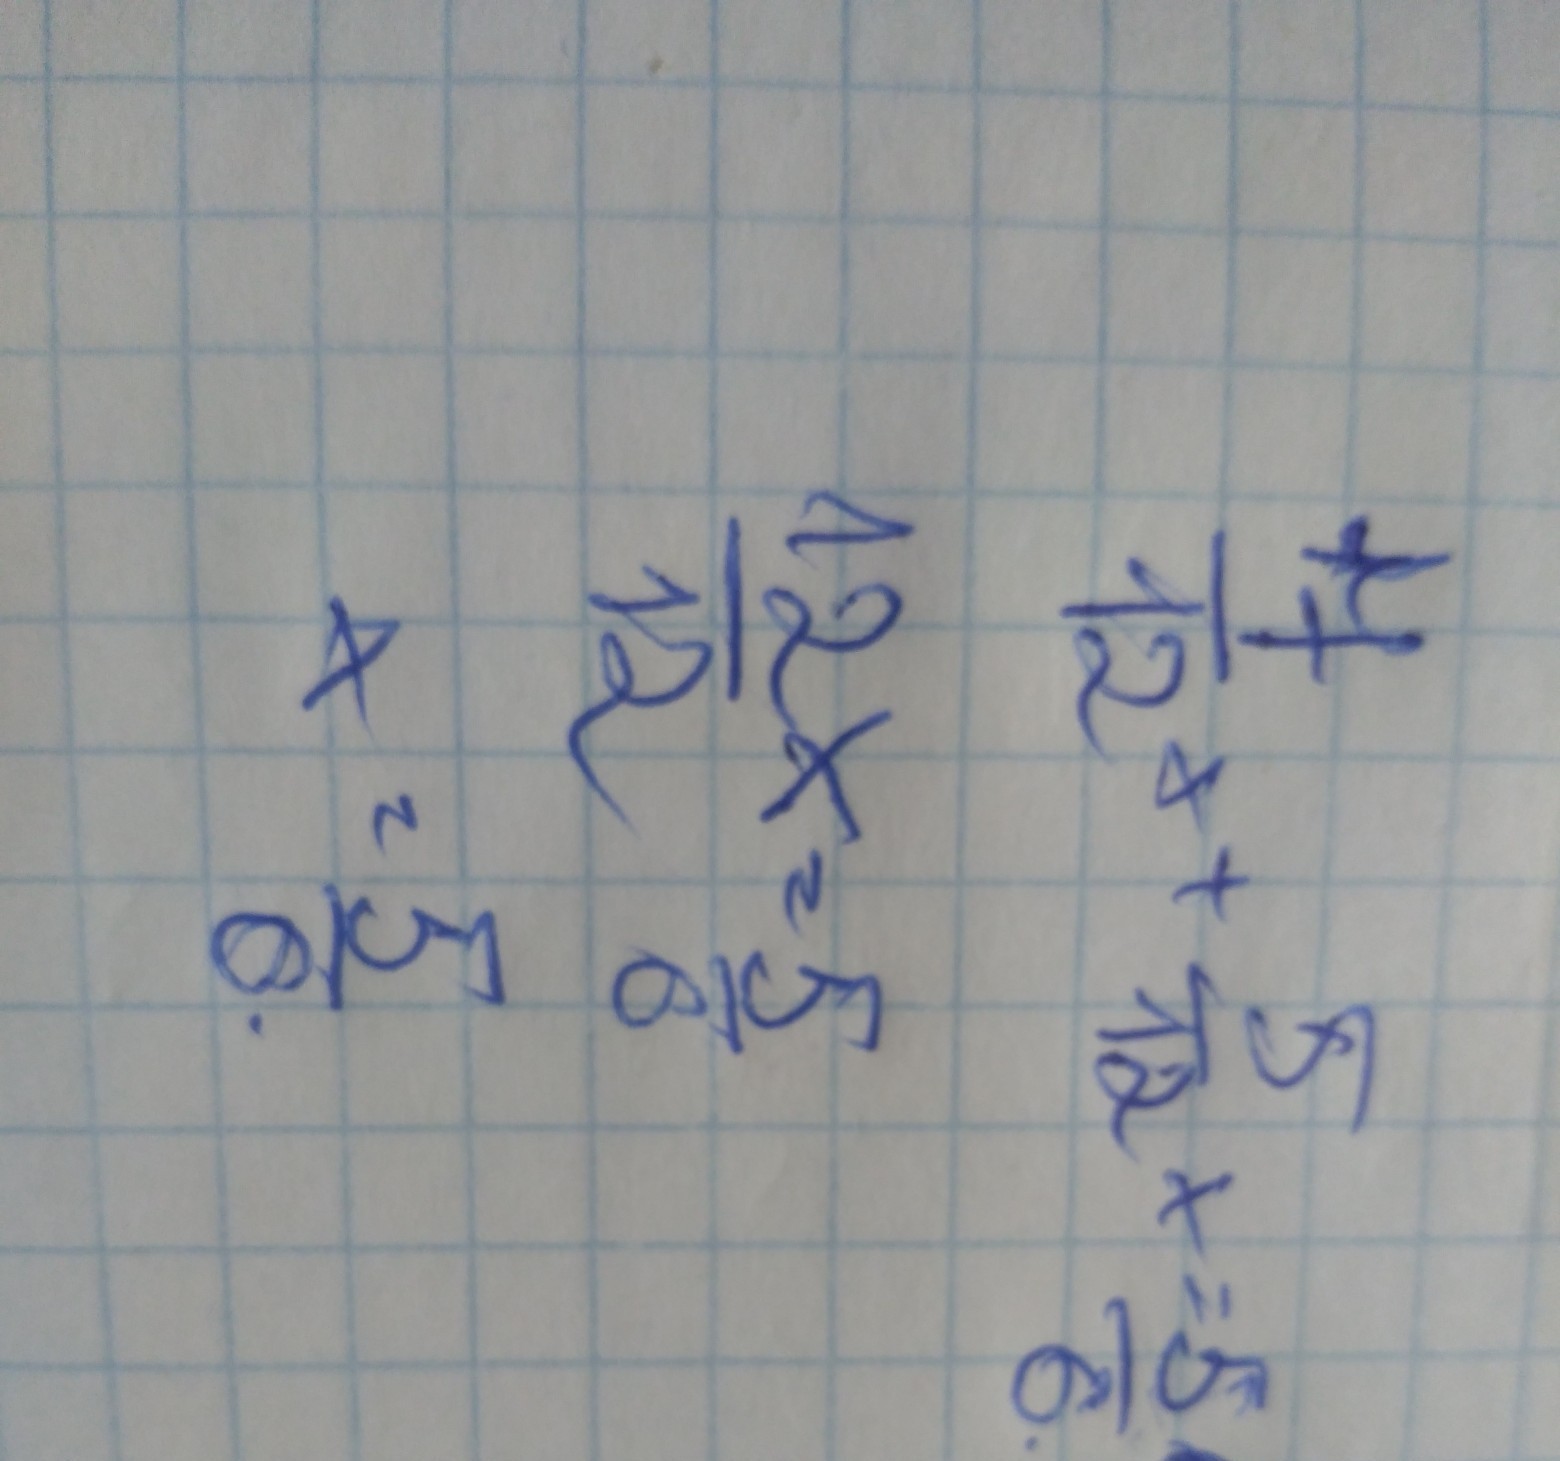 7/12 x + 5/12 x = 5/6.
12/12 x = 5/6
x = 5/6.